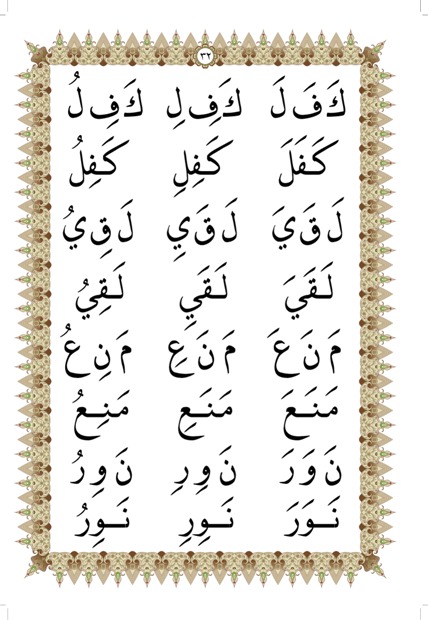 ٣٢
كَ فَ لَ كَ فِ لِ كَ فِ لُ
كَفَلَ كَفِلِ كَفِلُ
لَ قَ يَ لَ قَ يِ لَ قِ يُ
لَقَيَ لَقَيِ لَقِيُ
مَ نَ عَ مَ نَ عِ مَ نِ عُ
مَنَعَ مَنَعِ مَنِعُ
نَ وَ رَ نَ وِ رِ نَ وِ رُ
نَوَرَ نَوِرِ نَوِرُ